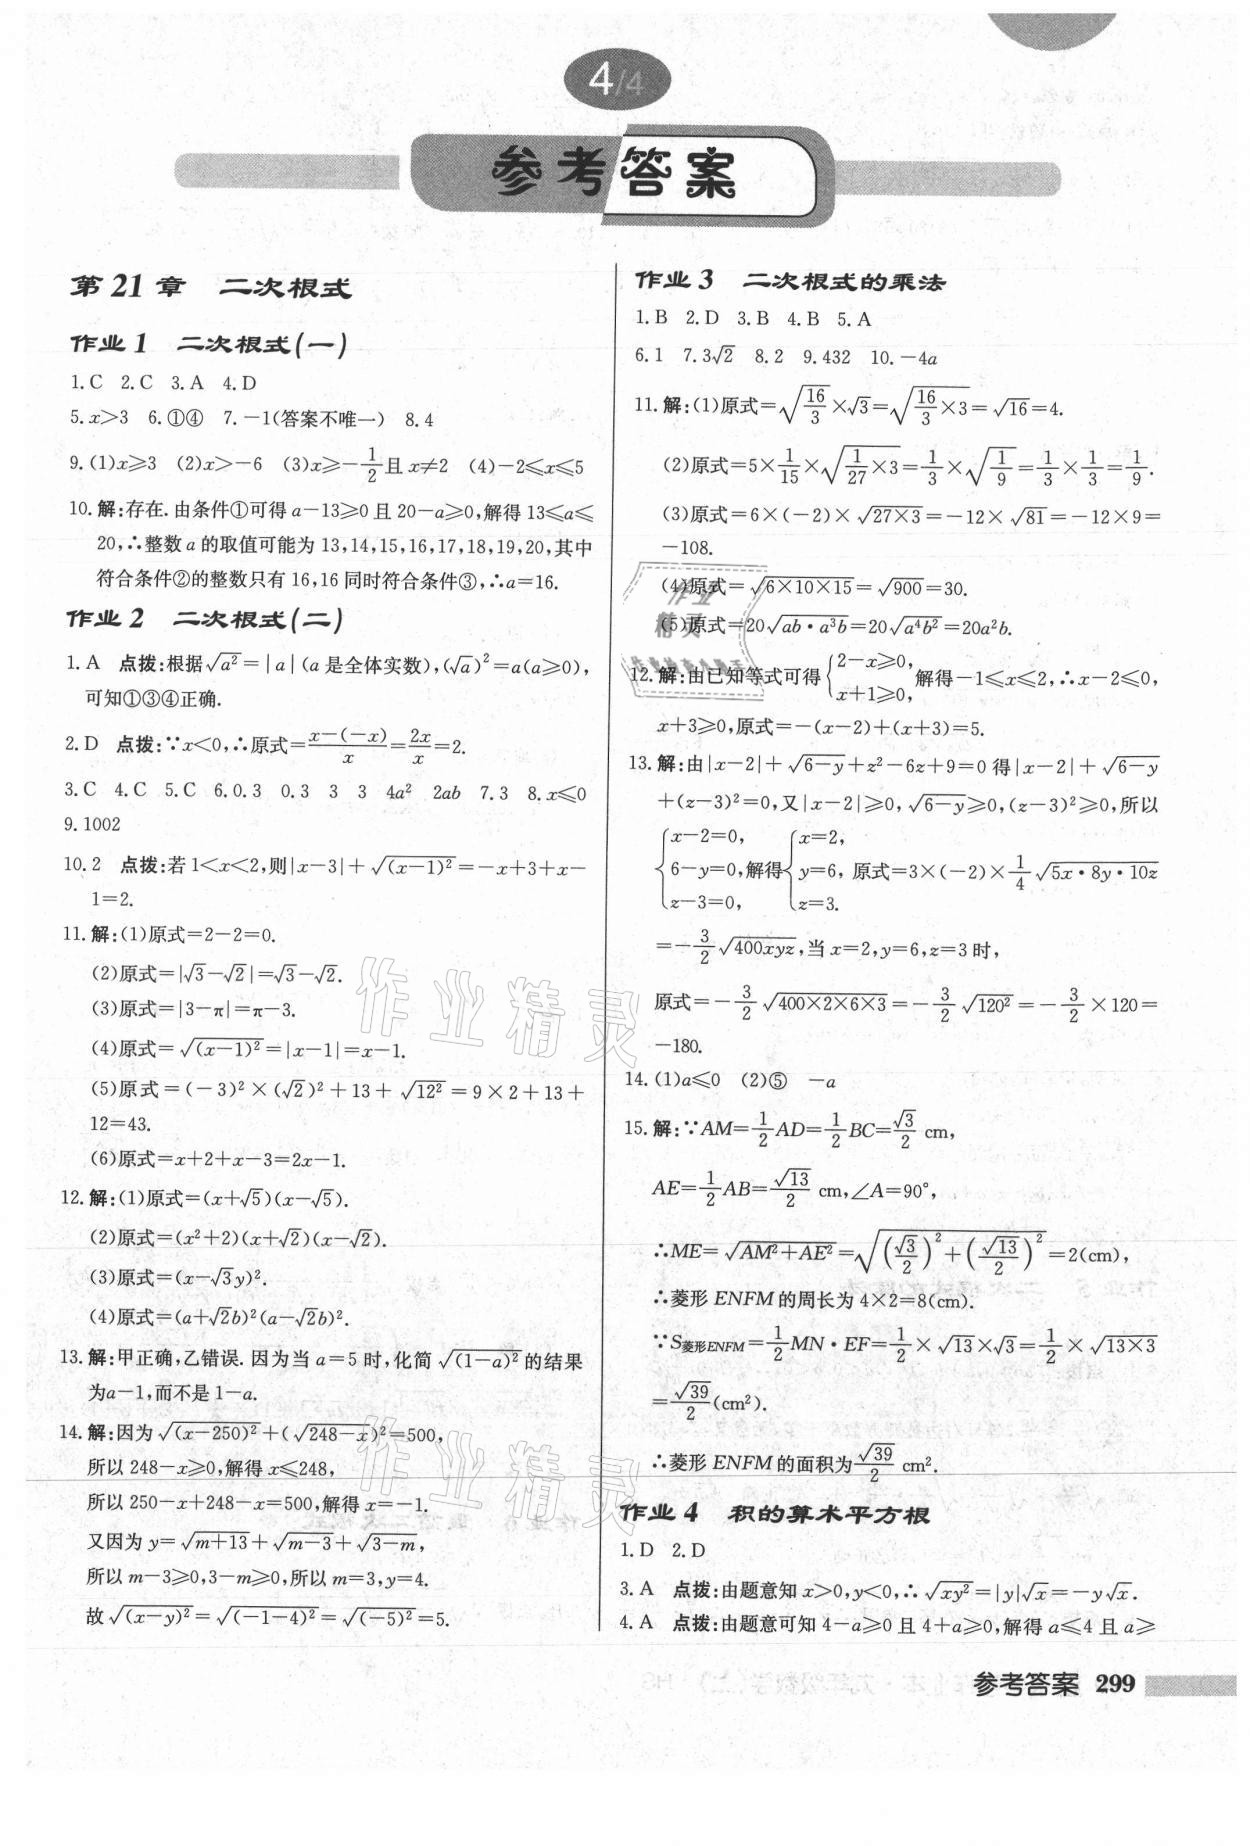 4/4
参考答案
第 21 章 二次根式
作业 1 二次根式(一)
1.C 2.C 3.A 4.D
5.x>3 6.①④ 7.-1(答案不唯一) 8.4
9.(1)x≥3 (2)x>-6 (3)x≥-1/2且 x≠2 (4)-2≤x≤5
10.解:存在.由条件①可得 a-13≥0 且 20-a≥0,解得 13≤a≤
20,∴整数 a 的取值可能为 13,14,15,16,17,18,19,20,其中
符合条件②的整数只有 16,16 同时符合条件③,∴a=16.
作业 2 二次根式(二)
1.A 点拨:根据√(a²)=|a|(a 是全体实数),(√a)²=a(a≥0),
可知①③④正确.
2.D 点拨:∵x<0,∴原式=(x-(-x))/x=2x/x=2.
3.C 4.C 5.C 6.0.3 0.3 3 3 4a² 2ab 7.3 8.x≤0
9.1002
10.2 点拨:若 1<x<2,则|x-3|+√((x-1)²)=-x+3+x-
1=2.
11.解:(1)原式=2-2=0.
(2)原式=|√3-√2|=√3-√2.
(3)原式=|3-π|=π-3.
(4)原式=√((x-1)²)=|x-1|=x-1.
(5)原式=(-3)²×(√2)²+13+√(12²)=9×2+13+
12=43.
(6)原式=x+2+x-3=2x-1.
12.解:(1)原式=(x+√5)(x-√5).
(2)原式=(x²+2)(x+√2)(x-√2).
(3)原式=(x-√3y)².
(4)原式=(a+√2b)²(a-√2b)².
13.解:甲正确,乙错误.因为当 a=5 时,化简√((1-a)²)的结果
为a-1,而不是 1-a.
14.解:因为√((x-250)²)+(√(248-x))²=500,
所以 248-x≥0,解得 x≤248,
所以 250-x+248-x=500,解得 x=-1.
又因为 y=√(m+13)+√(m-3)+√(3-m),
所以 m-3≥0,3-m≥0,所以 m=3,y=4.
故√((x-y)²)=√((-1-4)²)=√((-5)²)=5.
作业 3 二次根式的乘法
1.B 2.D 3.B 4.B 5.A
6.1 7.3√2 8.2 9.432 10.-4a
11.解:(1)原式=√(16/3)×√3=√(16/3×3)=√16=4.
(2)原式=5×1/15×√(1/27×3)=1/3×√(1/9)=1/3×1/3=1/9.
(3)原式=6×(-2)×√(27×3)=-12×√81=-12×9=
-108.
(4)原式=√(6×10×15)=√900=30.
(5)原式=20√(ab·a³b)=20√(a⁴b²)=20a²b.
12.解:由已知等式可得{2-x≥0, x+1≥0, 解得-1≤x≤2,∴x-2≤0,
x+3≥0,原式=-(x-2)+(x+3)=5.
13.解:由|x-2|+√(6-y)+z²-6z+9=0 得|x-2|+√(6-y)
+(z-3)²=0,又|x-2|≥0,√(6-y)≥0,(z-3)²≥0,所以
{x-2=0, 6-y=0, z-3=0, 解得{x=2, y=6, z=3. 原式=3×(-2)×1/4√(5x·8y·10z)
=-3/2√(400xyz),当 x=2,y=6,z=3 时,
原式=-3/2√(400×2×6×3)=-3/2√(120²)=-3/2×120=
-180.
14.(1)a≤0 (2)⑤ -a
15.解:∵AM=1/2AD=1/2BC=√3/2 cm,
AE=1/2AB=√13/2 cm,∠A=90°,
∴ME=√(AM²+AE²)=√((√3/2)²+(√13/2)²)=2(cm),
∴菱形 ENFM 的周长为 4×2=8(cm).
∵S菱形ENFM=1/2MN·EF=1/2×√13×√3=1/2×√(13×3)
=√39/2(cm²).
∴菱形 ENFM 的面积为√39/2 cm².
作业 4 积的算术平方根
1.D 2.D
3.A 点拨:由题意知 x>0,y<0,∴√(xy²)=|y|√x=-y√x.
4.A 点拨:由题意可知 4-a≥0 且 4+a≥0,解得 a≤4 且 a≥
参考答案 299
作业精灵
作业精灵
作业
精灵